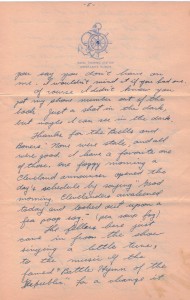 - 2 -
you say you don't have on
me. I wouldn't mind it if you had one.
Of course I didn't know you
got my shoe number out of the
book. Just a shot in the dark,
but maybe I can see in the dark.
Thanks for the Bells and
Boners. None were stale, and all
were good. I have a favorite one
of those. One foggy morning a
Cleveland announcer opened the
day's schedule by saying, "Good
morning, Clevelanders awakened
today and looked out upon a
fine foggy say." (pea soup fog)
The fellers here just
came in from the show
singing a little tune,
to the music of the
famed "Battle Hymn of the
Republic." So a change it